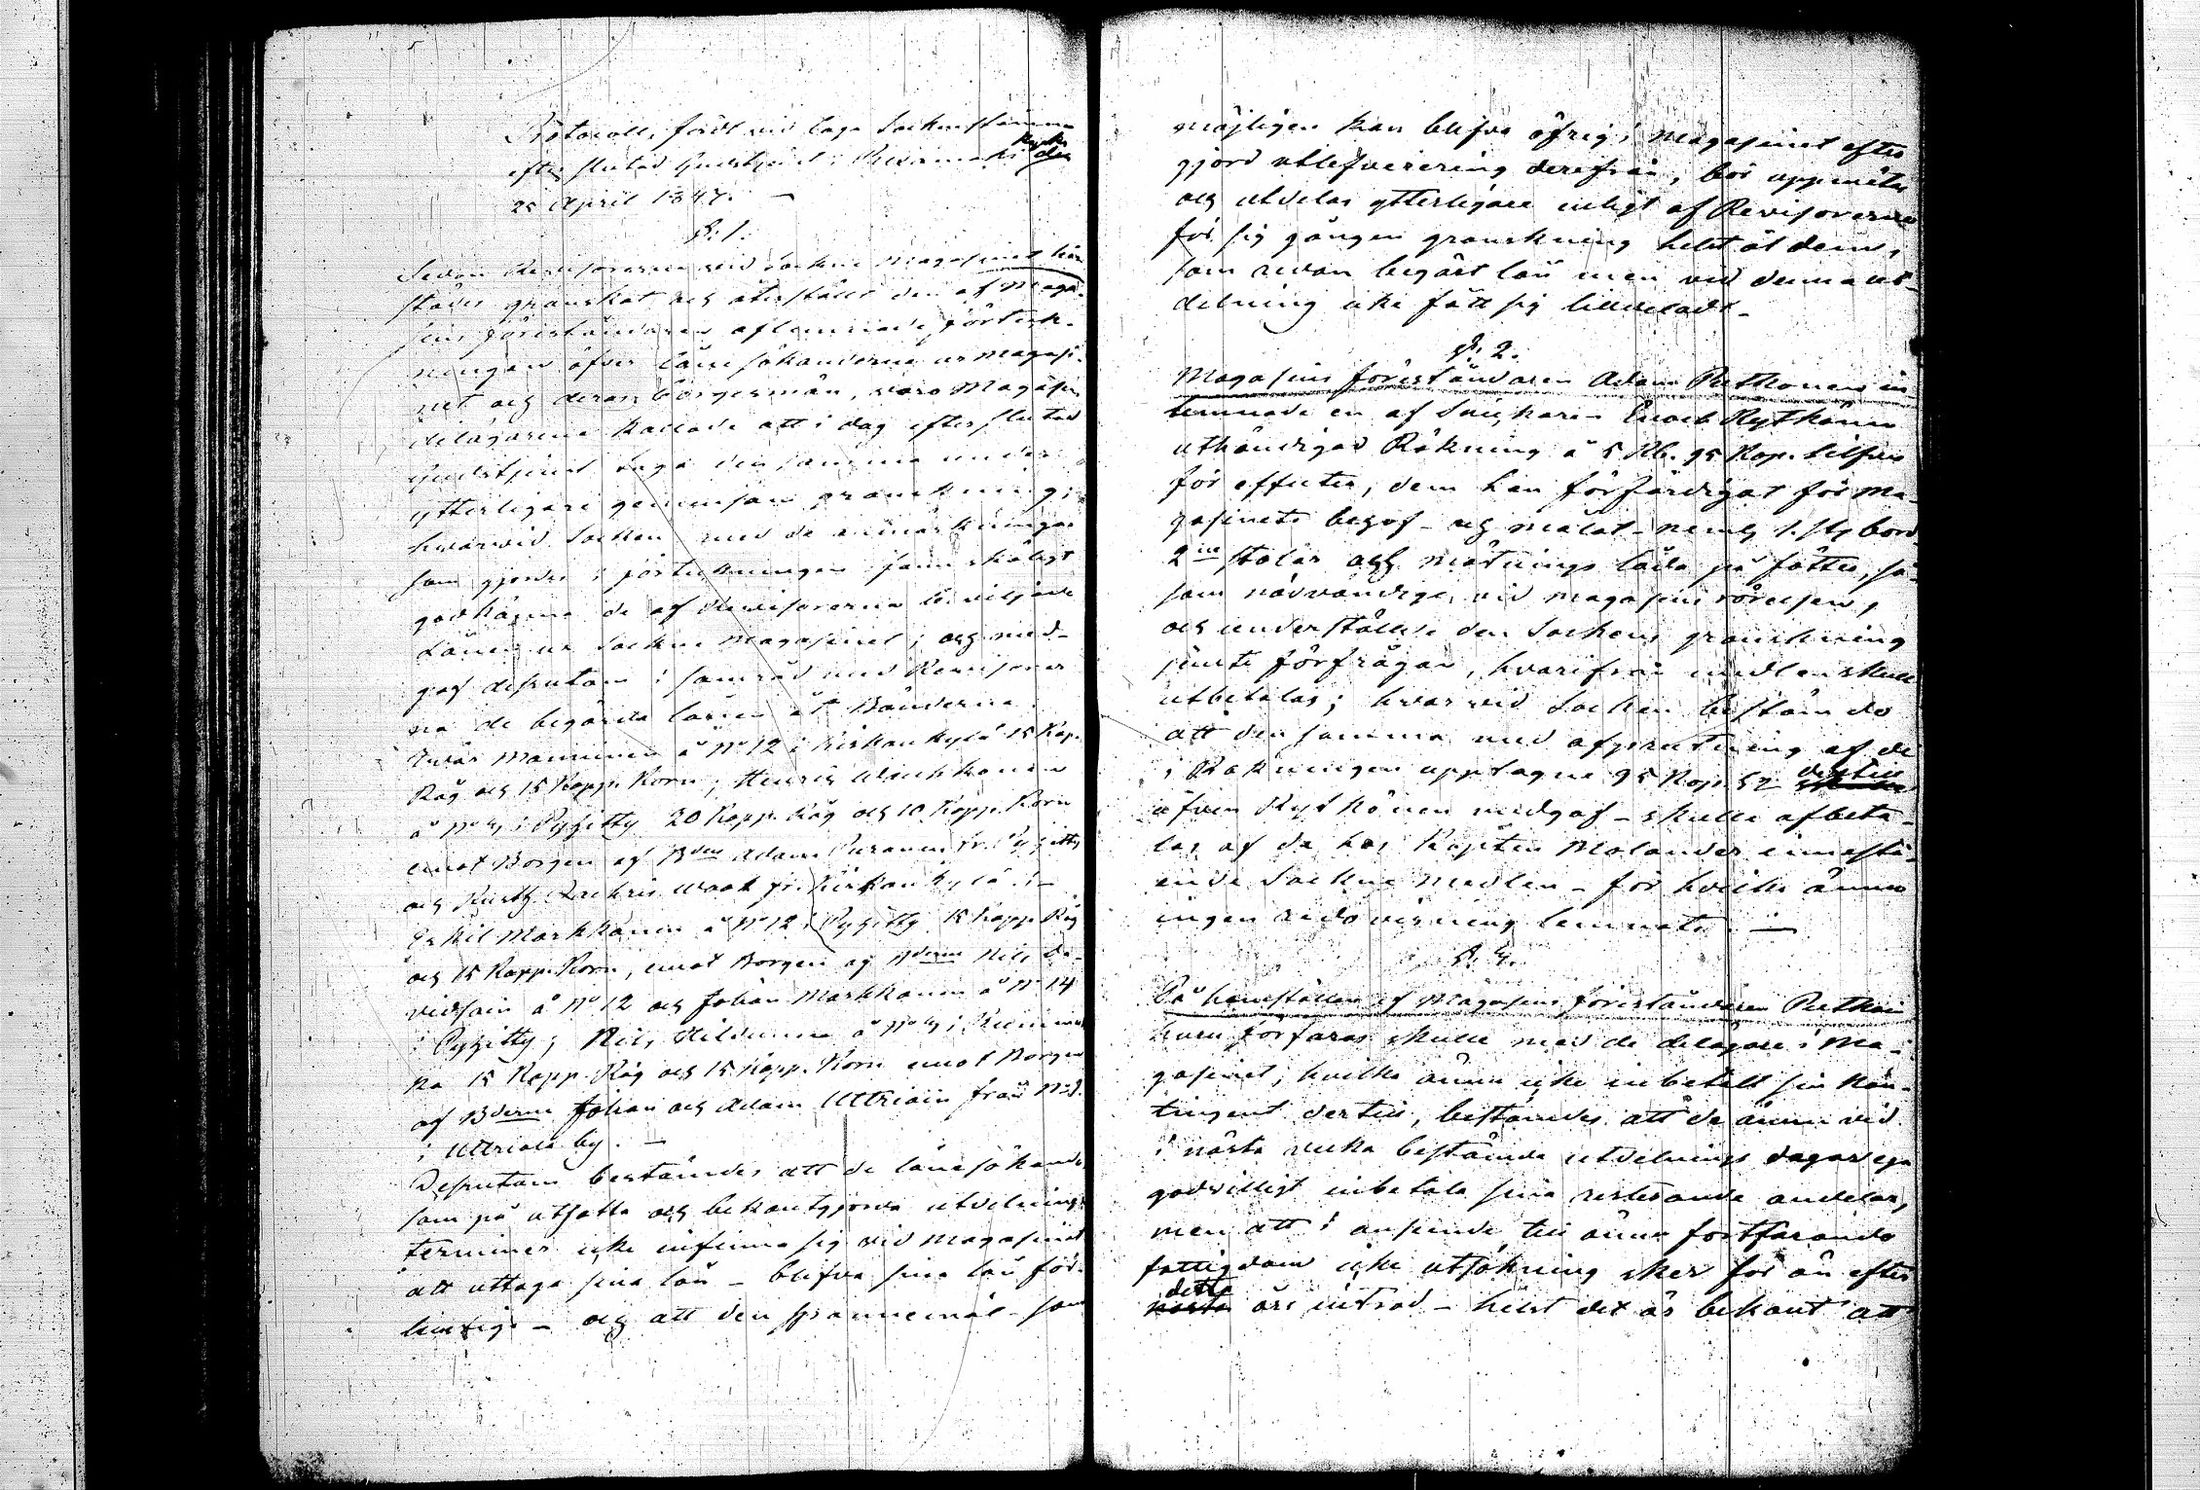 Protocoll, fördt vid laga Sockenstämma
efter slutad Gudstjenst i kyrka den
25 April 1847. —
§: 1.
Sedan Revisorerne vid Sockne Magasinet här
städes granskat och återställt den af Maga-
sins föreståndaren aflemnade förtek-
ningen öfver lånesökanderne ur Magasi-
net och deras börgesmän, voro Magasins
delägarene kallade att i dag efter slutad
Gudstjenst taga den samma under
ytterligare gemensam granskning;
hvarvid Socknen med de anmärkningar
som gjordes i förtekningen fann skäligt
godkänna de af Revisorerna beviljade
Lånen ur Sockne Magasinet; och med-
gaf dessutom i samråd med Revisorer
na de begärda lånen åt Bönderna
Ivar Manninen å N° 12 i Kirkonkylä 15 Kapp.
Råg och 15 Kapp. Korn; Henrik
å N° 4 i Pyhitty 20 Kapp. Råg och 10 Kapp. Korn
emot Borgen af Bden Adam Puranen fr. Pyhitty
och Kirkonkylä; —
Eskil Markkanen å N° 12 i Pyhitty 15 Kapp. Råg
och 15 Kapp. Korn, emot Borgen af Bderne Nils Da-
vidsain å N° 12 och Johan Markkanen å N° 14
i Pyhitty; Nils Hildunen å N° 4 i
ka 15 Kapp. Råg och 15 Kapp. Korn emot Borgen
af Bderne Johan och Adam Uttriain från N° 3.
i Uttriala by. —
Dessutom bestämdes att de lånesökande,
som på utsatta och bekantgjorda utdelnings
terminer icke infinna sig vid Magasinet
att uttaga sina lån — blifva sina lån för-
lustige — och att den spannemål som
möjligen kan blifva öfrig i Magasinet efter
gjord utlefverering derifrån, bör uppmätas
och utdelas ytterligare enligt af Revisorerne
för sig gången granskning helst åt dem,
som redan begärt lån men vid denna ut-
delning icke fått sig tilldeladt.
§: 2.
Magasins föreståndaren Adam Putkonen in
lemnade en af Snickaren Enoch Rytkönen
uthändigad Räkning å 5 Rb. 95 Kop. Silfver
för effecter, dem han förfärdigat för Ma-
gasinets behof och målat — neml. 1. st. bord
2ne stolar och mätnings låda på fötter, så-
som nödvändige vid magasins rörelsen,
och underställde den Socknens granskning
jemte förfrågan, hvarifrån medlen skulle
utbetalas; hvarvid Socknen bestämde
att den samma med afprutning af de
i Räkningen upptagne 95 Kop. S? dertill
äfven Rytkönen medgaf — skulle afbeta-
las af de hos Kapten Molander innestå-
ende Sockne Medlen — för hvilka ännu
ingen redovisning lemnats. —
§. 3.
På hemställan af Magasins föreståndaren Putkoin
huru förfaras skulle med de delägare i Ma-
gasinet, hvilka ännu icke inbetalt sin kon-
tingent dertill, bestämdes att de ännu vid
i nästa vecka bestämda utdelnings dagar ega
godvilligt inbetala sina resterande andelar,
men att i anseende till ännu fortfarande
fattigdom icke utsökning sker för än efter
detta års inträd — helst det är bekant att